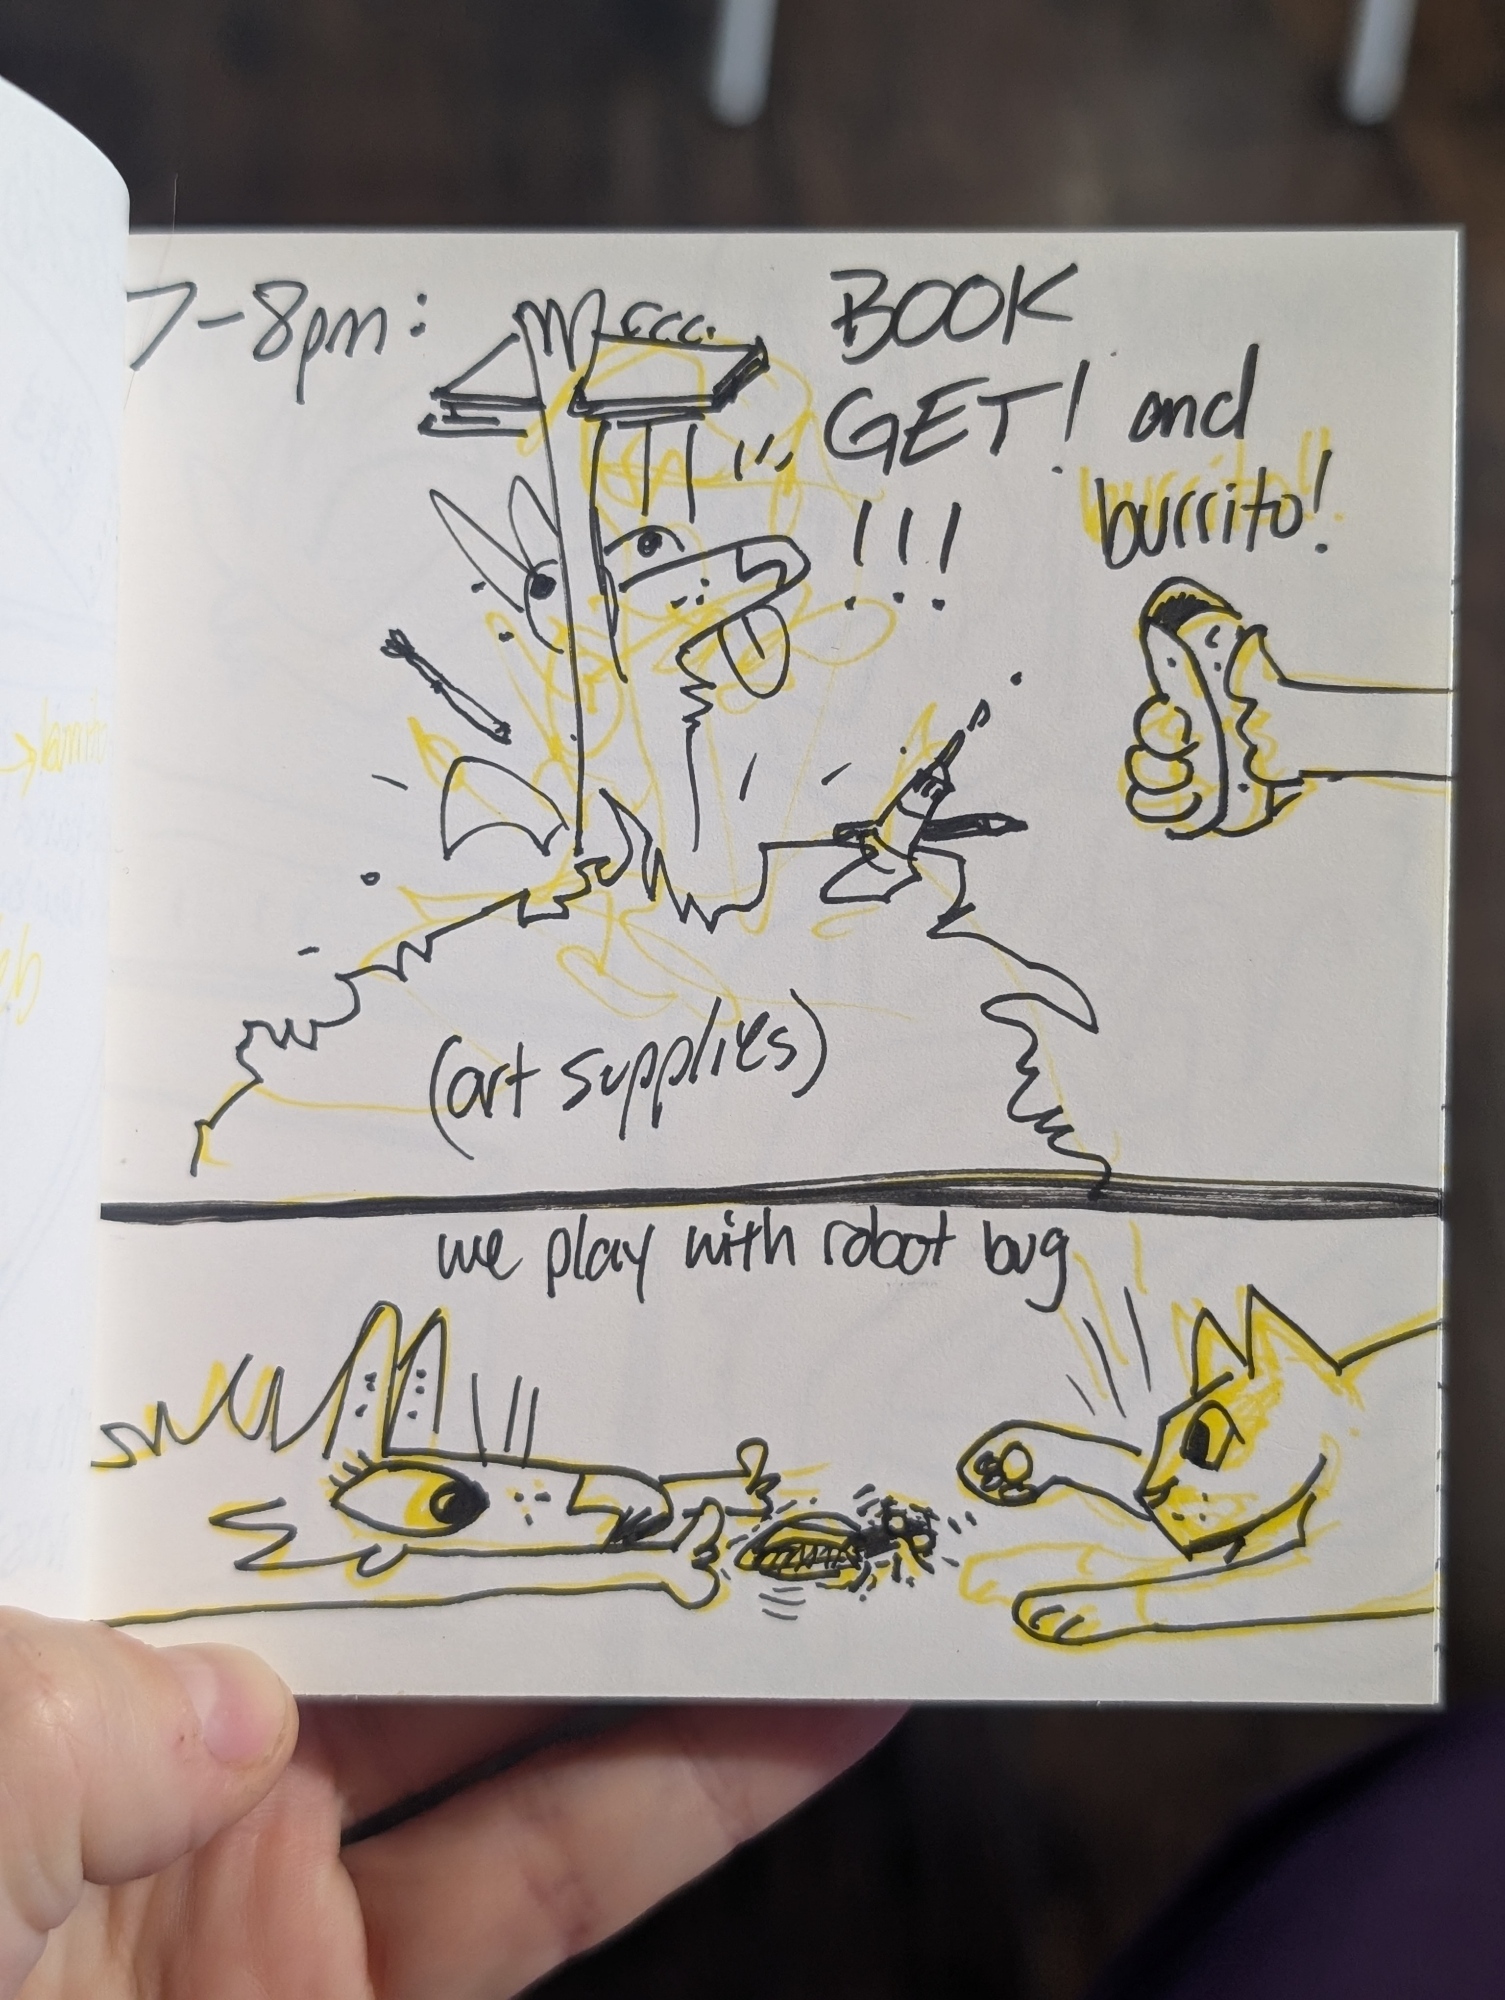 7-8pm:
BOOK
GET! and
!!!
burrito!
(art supplies)
we play with robot bug